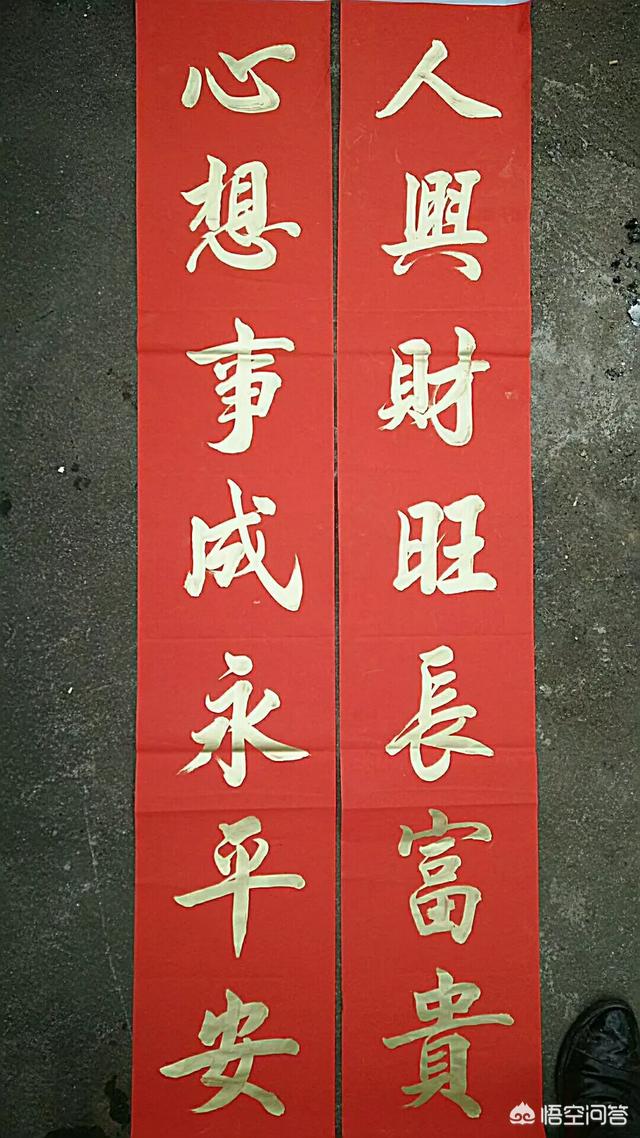 人興財旺長富貴
心想事成永平安
悟空问答